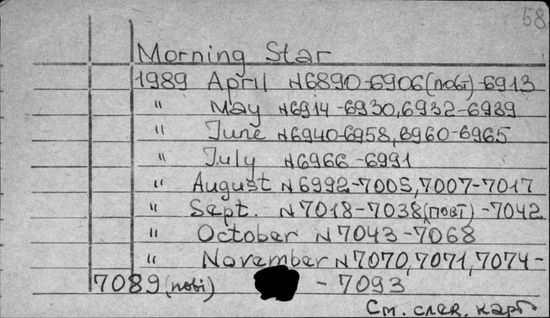 58
Morning Star
1989 April N6890-6906(пов1)-6913
" May N6914-6930,6932-6939
" June N6940-6958,6960-6965
" July N6966-6991
" August N6992-7005,7007-7017
" Sept. N7018-7038(пов1)-7042
" October N7043-7068
" November N7070,7071,7074-
7089(пов1) - 7093
См. след. карт